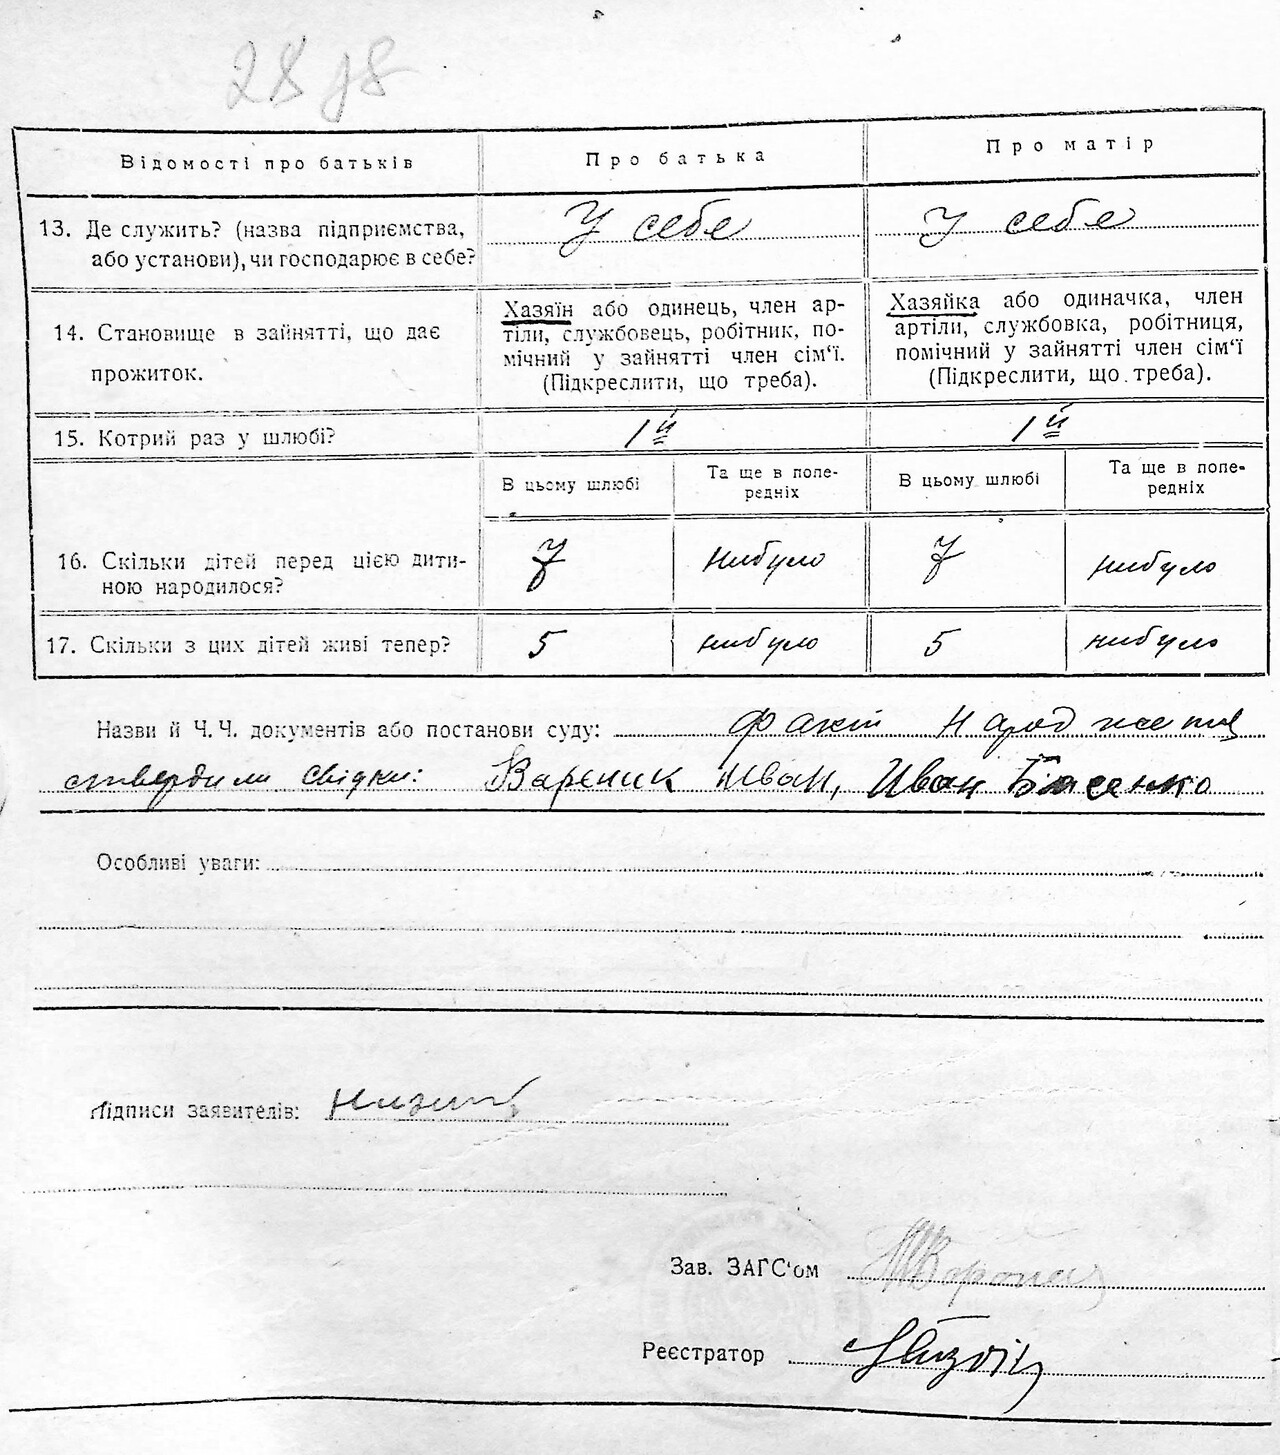 Відомості про батьків
Про батька
Про матір
13. Де служить? (назва підприємства,
або установи), чи господарює в себе?
У себе
У себе
14. Становище в зайнятті, що дає
прожиток.
Хазяїн або одинець, член ар-
тіли, службовець, робітник, по-
мічний у зайнятті член сім‘ї.
(Підкреслити, що треба).
Хазяйка або одиначка, член
артіли, службовка, робітниця,
помічний у зайнятті член сім‘ї
(Підкреслити, що треба).
15. Котрий раз у шлюбі?
1й
1й
В цьому шлюбі
Та ще в попе-
редніх
В цьому шлюбі
Та ще в попе-
редніх
16. Скільки дітей перед цією дити-
ною народилося?
7
нибуло
7
нибуло
17. Скільки з цих дітей живі тепер?
5
нибуло
5
нибуло
Назви й Ч. Ч. документів або постанови суду: факт
ствердили свідки: Вареник Иван, Иван
Особливі уваги:
Підписи заявителів:
Зав. ЗАГС‘ом
Реєстратор